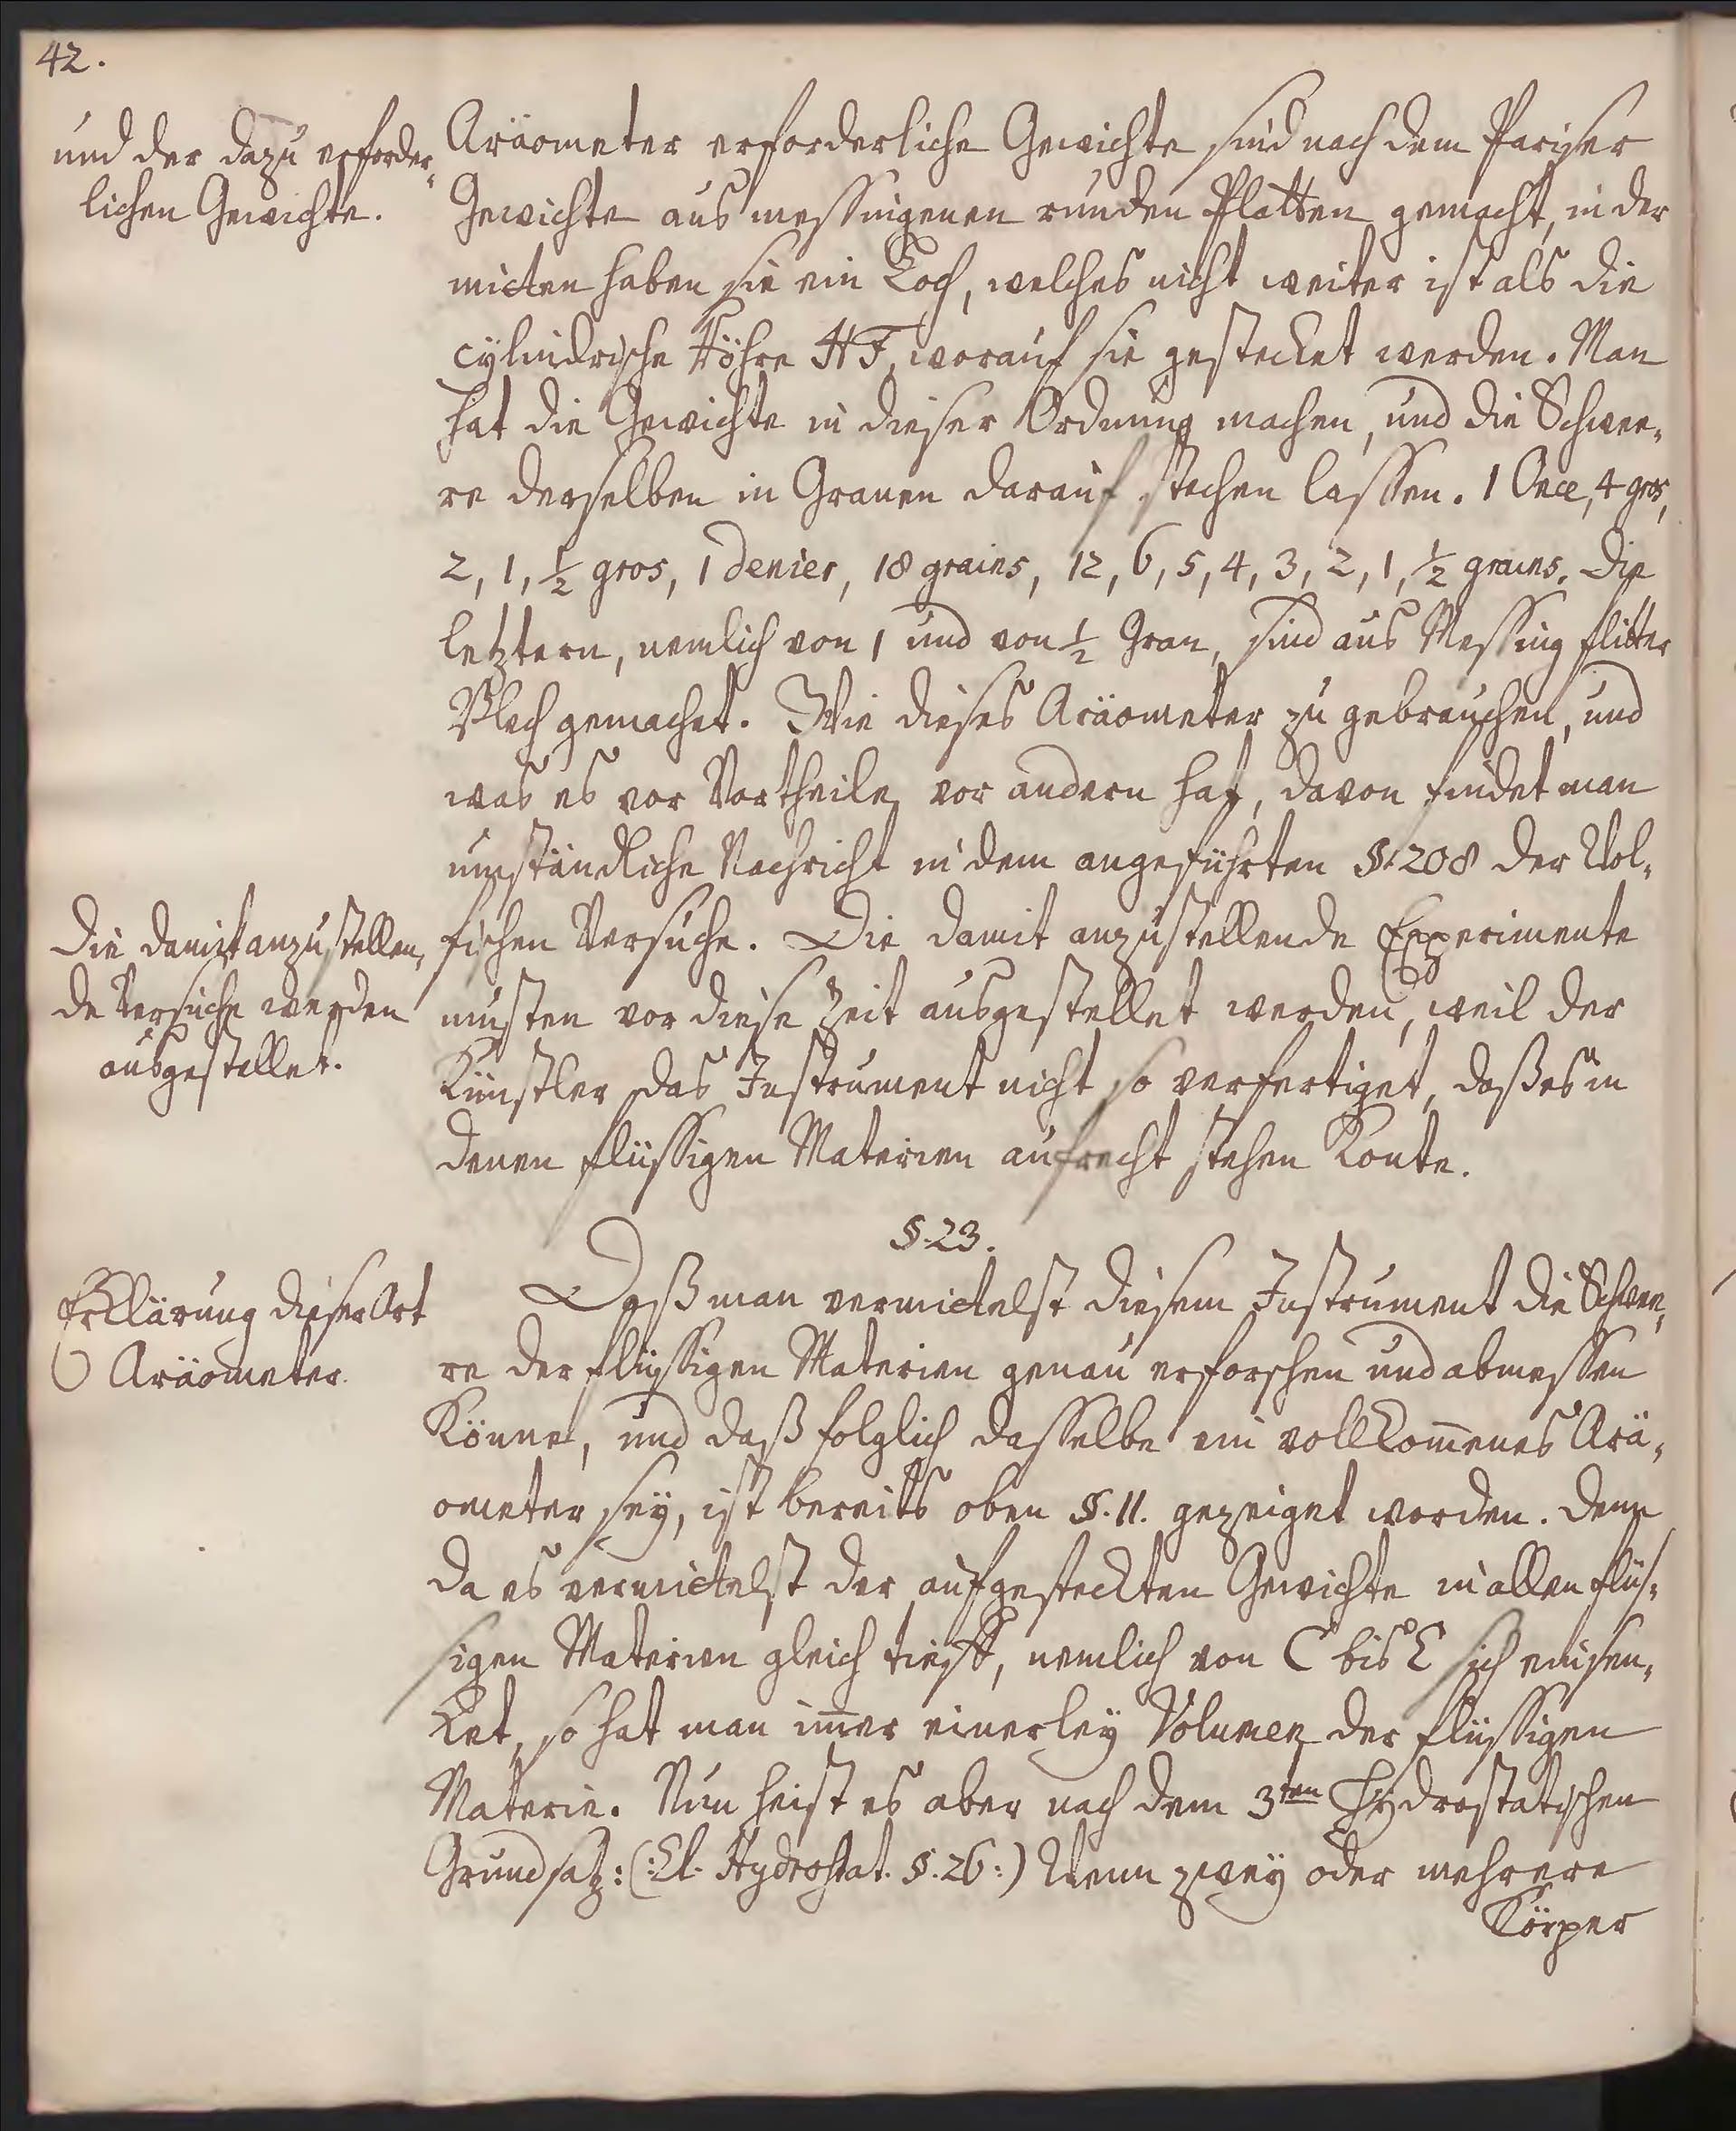 42.
und der dazu erforder-
lichen Gewichte.
Aräometer erforderliche Gewichte sind nach dem Pariser
Gewichte aus messingenen runden Platten gemacht, in der
mitten haben sie ein Loch, welches nicht weiter ist als die
cylindrische Röhre HF, worauf sie gestecket werden. Man
hat die Gewichte in dieser Ordnung machen, und die Schwee-
re derselben in Granen darauf stechen lassen. 1 Once, 4 gros,
2, 1, ½ gros, 1 denier, 18 grains, 12, 6, 5, 4, 3, 2, 1, ½ grains. Die
letztern, nemlich von 1 und von ½ Gran, sind aus Messing flitter
Blech gemachet. Wie dieses Aräometer zu gebrauchen, und
was es vor Vortheile vor andern hat, davon findet man
umständliche Nachricht in dem angeführten §. 208 der Wol-
fischen Versuche. Die damit anzustellende Experimente
musten vor diese Zeit ausgestellet werden, weil der
Künstler das Instrument nicht so verfertiget, daß es in
denen flüssigen Materien aufrecht stehen konte.
Die damit anzustellen-
de Versuche werden
ausgestellet.
§. 23.
Erklärung dieser Art
Aräometer.
Daß man vermittelst diesem Instrument die Schwee-
re der flüssigen Materien genau erforschen und abmessen
könne, und daß folglich dasselbe ein vollkom̄enes Arä-
ometer seÿ, ist bereits oben §. 11. gezeiget worden. Denn
da es vermittelst der aufgesteckten Gewichte in allen flüs-
sigen Materien gleich tieff, nemlich von C bis E sich einsen-
ket, so hat man im̄er einerleÿ Volumen der flüssigen
Materie. Nun heist es aber nach dem 3ten Hydrostatischen
Grundsatz: (: El. Hydrostat. §. 26 :) Wenn zweÿ oder mehrere
Körper